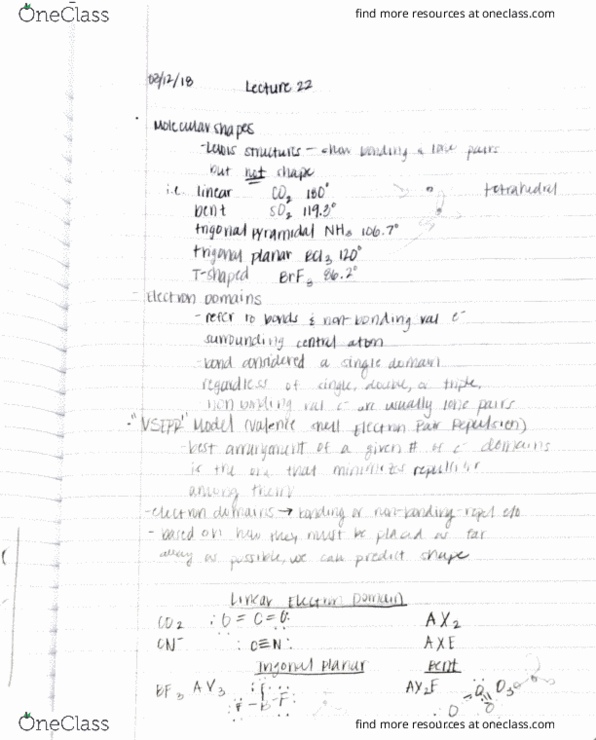 OneClass
find more resources at oneclass.com
03/12/18 Lecture 22
Molecular shapes
-Lewis structures - show bonding & lone pairs
but not shape
i.e. linear CO2 180° tetrahedral
bent SO2 119.3°
trigonal pyramidal NH3 106.7°
trigonal planar BCl3 120°
T-shaped BrF3 86.2°
- Electron Domains
- refer to bonds & non-bonding val e-
surrounding central atom
- bond considered a single domain
regardless of single, double, or triple,
non bonding val e- are usually lone pairs
- "VSEPR" Model (Valence Shell Electron Pair Repulsion)
- best arrangment of a given # of e- domains
is the one that minimizes repulsion
among them
- electron domains → bonding or non-bonding repel e/o
- based on how they must be placed as far
away as possible, we can predict shape
Linear Electron Domain
CO2 :O=C=O: AX2
CN- :C≡N: AXE
Trigonal Planar Bent
BF3 AX3 F-B-F AX2E O3
OneClass
find more resources at oneclass.com